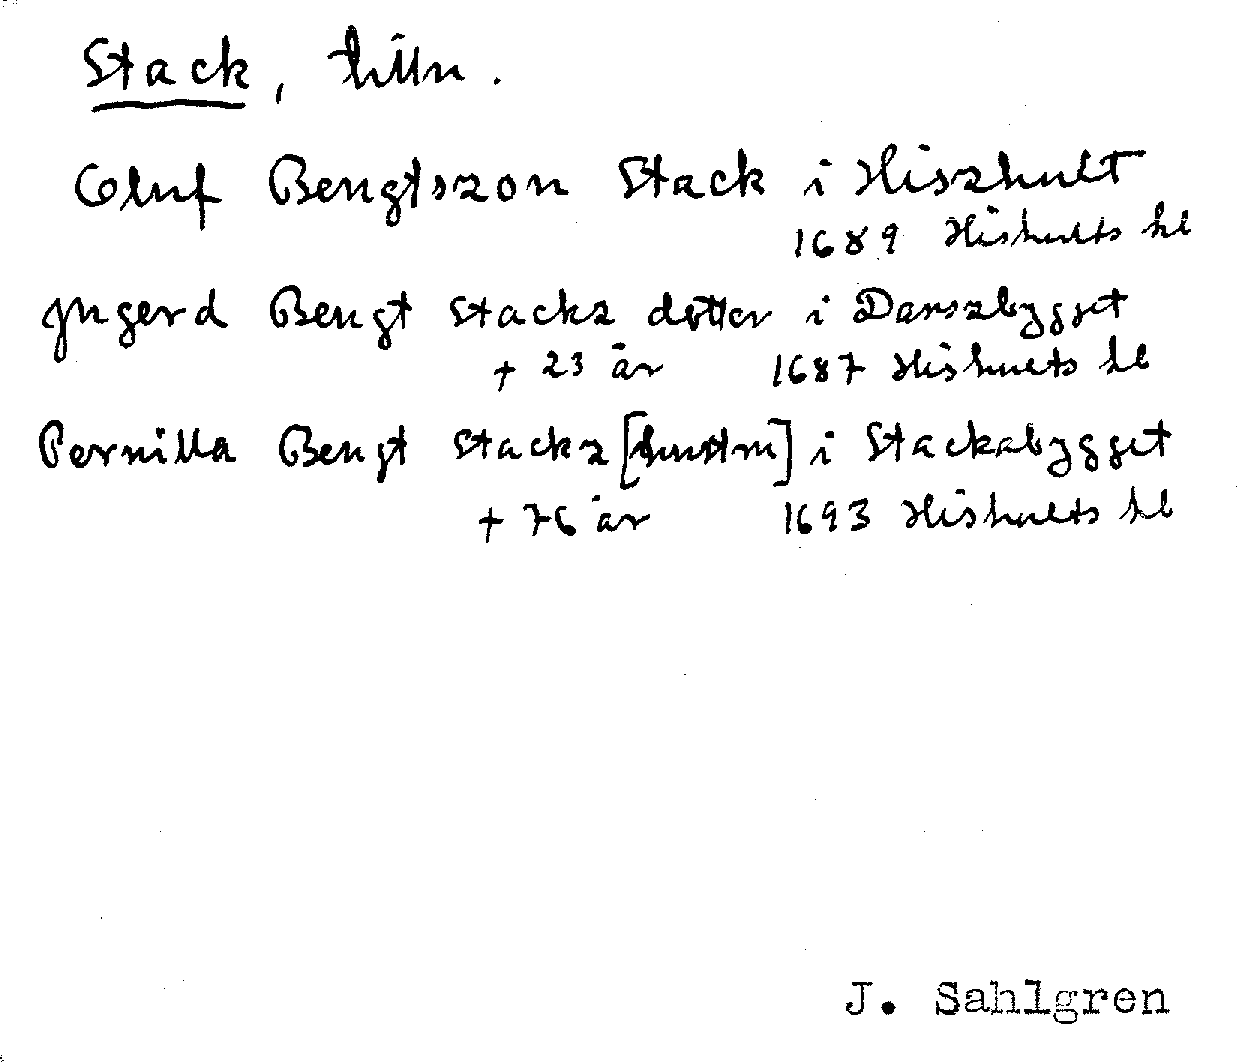 Stack, tilln.
Oluf Bengtszon Stack i Hiszhult
1689 Hishults kl
Ingerd Bengt Stackz dotter i Danszbygget
+ 23 år 1687 Hishults kl
Pernilla Bengt Stackz [hustru] i Stackabygget
+ 76 år 1693 Hishults kl
J. Sahlgren